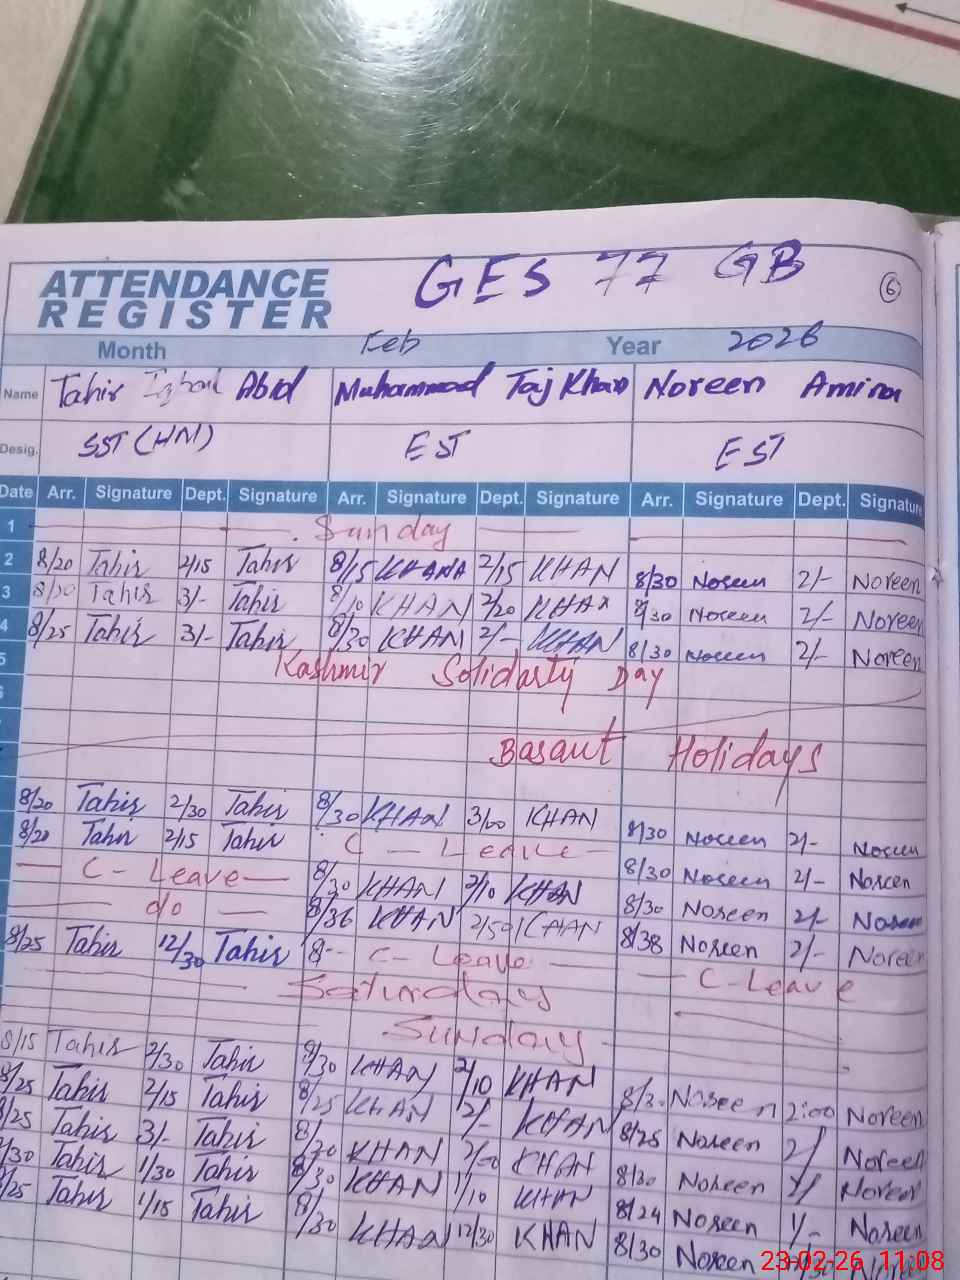 GES 77 GB
6
ATTENDANCE
REGISTER
Month Feb Year 2026
Name Tahir Iqbal Abid Muhammad Taj Khan Noreen Amina
Desig. SST (HM) EST EST
Date Arr. Signature Dept. Signature Arr. Signature Dept. Signature Arr. Signature Dept. Signature
1 Sunday
2 8/20 Tahir 2/15 Tahir 8/15 KHAN 2/15 KHAN 8/30 Noreen 2/- Noreen
3 8/20 Tahir 3/- Tahir 8/10 KHAN 2/20 KHAN 8/30 Noreen 2/- Noreen
4 8/25 Tahir 3/- Tahir 8/30 KHAN 2/- KHAN 8/30 Noreen 2/- Noreen
5 Kashmir Solidarty Day
6
Basant Holidays
8/20 Tahir 2/30 Tahir 8/30 KHAN 3/00 KHAN 8/30 Noreen 2/- Noreen
8/20 Tahir 2/15 Tahir C - Leave - 8/30 Noreen 2/- Noreen
C - Leave 8/30 KHAN 2/10 KHAN 8/30 Noreen 2/- Noreen
do 8/36 KHAN 2/50 KHAN 8/38 Noreen 2/- Noreen
8/25 Tahir 12/30 Tahir 8-- C - Leave C - Leave
Saturday
Sunday
8/15 Tahir 2/30 Tahir 8/30 KHAN 2/10 KHAN Noreen 2:00 Noreen
8/25 Tahir 2/15 Tahir 8/25 KHAN 2/- KHAN 8/25 Noreen 2/ Noreen
8/25 Tahir 3/- Tahir KHAN KHAN 8/30 Noreen Noreen
8/30 Tahir 1/30 Tahir 8/30 KHAN 1/10 KHAN 8/24 Noreen 1/- Noreen
8/25 Tahir 1/15 Tahir 8/30 KHAN 12/30 KHAN 8/30 Noreen
23-02-26 11:08